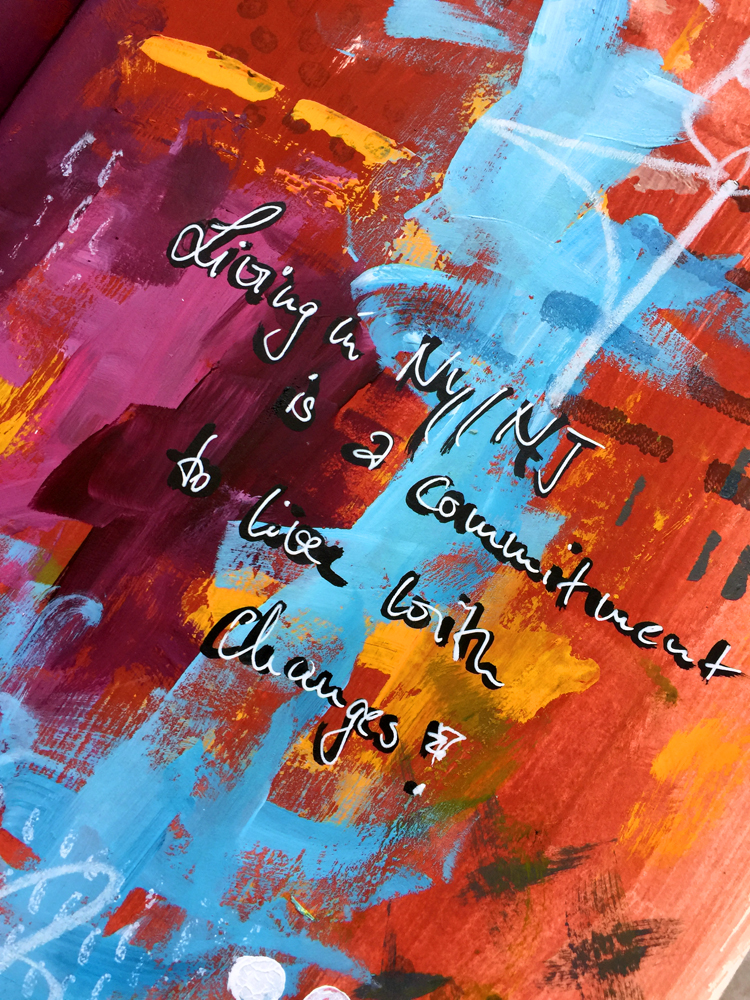 Living in NY/NJ
is a commitment
to live with
changes!